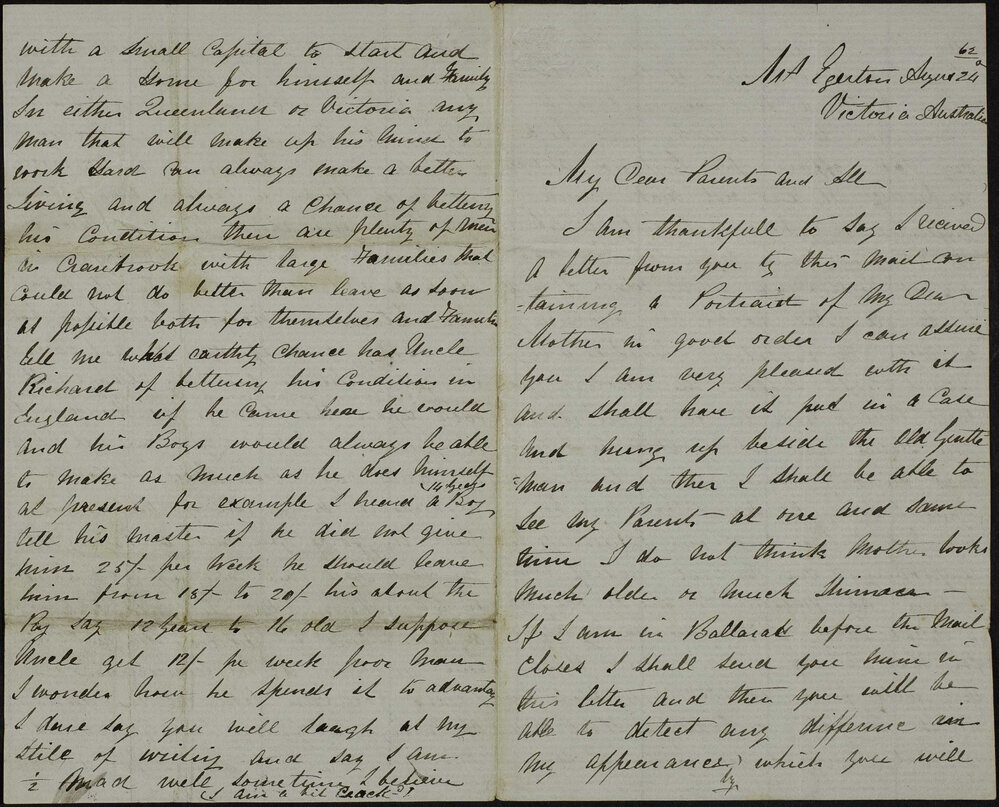 with a Small Capital to start and
make a Home for himself and Family
In either Queenland or Victoria any
man that will make up his mind to
work Hard can always make a better
Living and always a Chance of bettering
his Condition there are plenty of Men
in Cranbrook with large Families that
Could not do better than leave as soon
as possible both for themselves and Families
tell me what earthly Chance has Uncle
Richard of bettering his Condition in
England if he Came here he would
and his Boys would always be able
to make as much as he does himself
at present for example I heard a Boy
14 years
tell his master if he did not give
him 25/- per Week he should leave
him from 15/- to 20/- his about the
Pay say 12 years to 16 old I suppose
Uncle get 12/- pe week poor man
I wonder how he spends it to advantag
I dare say you will laugh at my
stile of writing and say I am
½ mad well sometime I believe
(I am a bit Crack-d)
Mt Egerton Augus 24 62
Victoria Australia
My Dear Parents and All
I am thankfull to say I recieved
A letter from you by this Mail con
-taining a Portrait of My Dear
Mother in good order I can assure
you I am very pleased with it
and shall have it put in a Case
And hung up beside the Old Gentle
-man and then I shall be able to
See my Parents at one and same
time I do not think Mother looks
much older or much thinner -
If I am in Ballarat before the Mail
Closes I shall send you mine in
this letter and then you will be
able to detect any differince in
my appearance by which you will